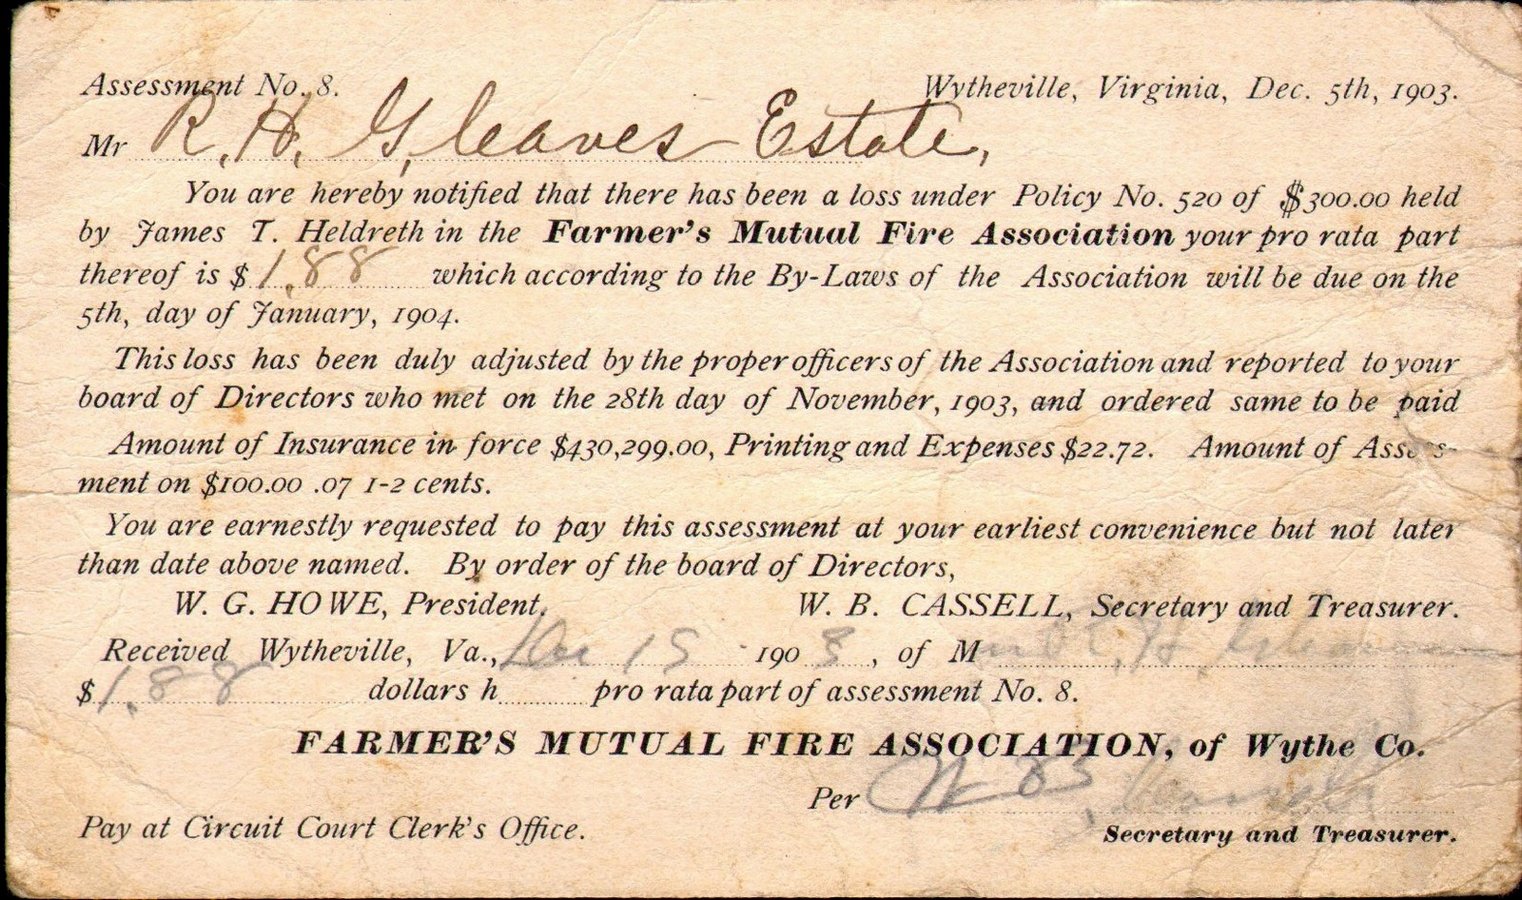 Assessment No. 8. Wytheville, Virginia, Dec. 5th, 1903.
Mr R. H. Gleaves Estate,
You are hereby notified that there has been a loss under Policy No. 520 of $300.00 held
by James T. Heldreth in the Farmer's Mutual Fire Association your pro rata part
thereof is $ 1.88 which according to the By-Laws of the Association will be due on the
5th, day of January, 1904.
This loss has been duly adjusted by the proper officers of the Association and reported to your
board of Directors who met on the 28th day of November, 1903, and ordered same to be paid
Amount of Insurance in force $430,299.00, Printing and Expenses $22.72. Amount of Assess-
ment on $100.00 .07 1-2 cents.
You are earnestly requested to pay this assessment at your earliest convenience but not later
than date above named. By order of the board of Directors,
W. G. HOWE, President. W. B. CASSELL, Secretary and Treasurer.
Received Wytheville, Va., Dec 15 1903, of M R. H. Gleaves
$1.88 dollars h pro rata part of assessment No. 8.
FARMER'S MUTUAL FIRE ASSOCIATION, of Wythe Co.
Per W B, Cassell
Pay at Circuit Court Clerk's Office. Secretary and Treasurer.